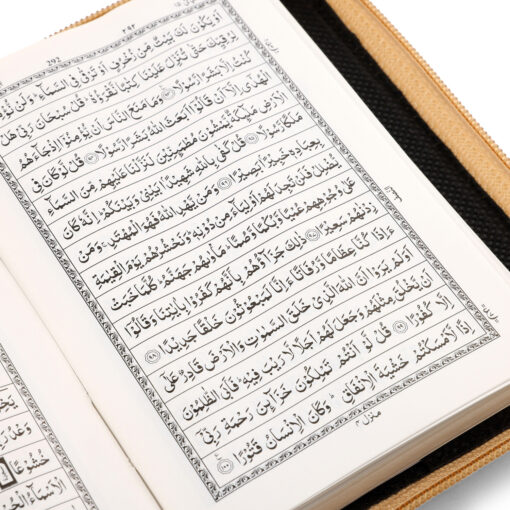 ٢٩٢
اَوْ يَكُوْنَ لَكَ بَيْتٌ مِّنْ زُخْرُفٍ اَوْ تَرْقٰى فِى السَّمَآءِ ؕ وَلَنْ نُّؤْمِنَ
لِرُقِيِّكَ حَتّٰى تُنَزِّلَ عَلَيْنَا كِتٰبًا نَّقْرَؤُهٗ ؕ قُلْ سُبْحَانَ رَبِّىْ هَلْ
كُنْتُ اِلَّا بَشَرًا رَّسُوْلًا ﴿۹۳﴾ وَمَا مَنَعَ النَّاسَ اَنْ يُّؤْمِنُوْۤا اِذْ جَآءَهُمُ
الْهُدٰٓى اِلَّاۤ اَنْ قَالُوْۤا اَبَعَثَ اللّٰهُ بَشَرًا رَّسُوْلًا ﴿۹۴﴾ قُلْ لَّوْ كَانَ فِى
الْاَرْضِ مَلٰٓئِكَةٌ يَّمْشُوْنَ مُطْمَئِنِّيْنَ لَنَزَّلْنَا عَلَيْهِمْ مِّنَ السَّمَآءِ
مَلَكًا رَّسُوْلًا ﴿۹۵﴾ قُلْ كَفٰى بِاللّٰهِ شَهِيْدًۢا بَيْنِىْ وَبَيْنَكُمْ ؕ اِنَّهٗ كَانَ
بِعِبَادِهٖ خَبِيْرًۢا بَصِيْرًا ﴿۹۶﴾ وَمَنْ يَّهْدِ اللّٰهُ فَهُوَ الْمُهْتَدِ ۚ وَمَنْ
يُّضْلِلْ فَلَنْ تَجِدَ لَهُمْ اَوْلِيَآءَ مِنْ دُوْنِهٖ ؕ وَنَحْشُرُهُمْ يَوْمَ الْقِيٰمَةِ
عَلٰى وُجُوْهِهِمْ عُمْيًا وَّبُكْمًا وَّصُمًّا ؕ مَاْوٰٮهُمْ جَهَنَّمُ ؕ كُلَّمَا خَبَتْ
زِدْنٰهُمْ سَعِيْرًا ﴿۹۷﴾ ذٰلِكَ جَزَآؤُهُمْ بِاَنَّهُمْ كَفَرُوْا بِاٰيٰتِنَا وَقَالُوْۤا
ءَاِذَا كُنَّا عِظَامًا وَّرُفَاتًا ءَاِنَّا لَمَبْعُوْثُوْنَ خَلْقًا جَدِيْدًا ﴿۹۸﴾
اَوَلَمْ يَرَوْا اَنَّ اللّٰهَ الَّذِىْ خَلَقَ السَّمٰوٰتِ وَالْاَرْضَ قَادِرٌ عَلٰٓى
اَنْ يَّخْلُقَ مِثْلَهُمْ وَجَعَلَ لَهُمْ اَجَلًا لَّا رَيْبَ فِيْهِ ؕ فَاَبَى الظّٰلِمُوْنَ
اِلَّا كُفُوْرًا ﴿۹۹﴾ قُلْ لَّوْ اَنْتُمْ تَمْلِكُوْنَ خَزَآئِنَ رَحْمَةِ رَبِّىْۤ
اِذًا لَّاَمْسَكْتُمْ خَشْيَةَ الْاِنْفَاقِ ؕ وَكَانَ الْاِنْسَانُ قَتُوْرًا ﴿۱۰۰﴾
منزل ۴